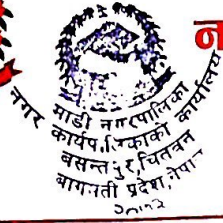 माडी नगरपालिका
नगर कार्यपालिकाको कार्यालय
बसन्तपुर, चितवन
बागमती प्रदेश, नेपाल
न